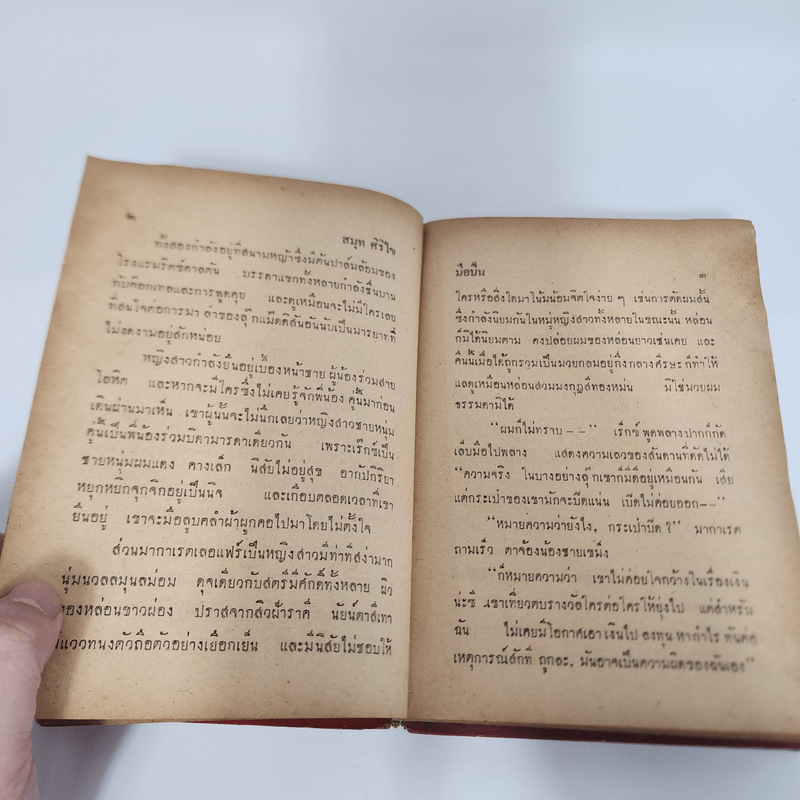 ๒
สมุท ศิริไข
ทั้งสองกำลังอยู่ที่สนามหญ้าซึ่งมีต้นปาล์มล้อมของ
โรงแรมริตซ์คาลตัน บรรดาแขกทั้งหลายกำลังชื่นบาน
กับค๊อกเทลและการพูดคุย และดูเหมือนจะไม่มีใครเลย
ที่สนใจต่อการมา ลาของลุ๊กแม๊ดดิสันอันนับเป็นมารยาทที่
ไม่งดงามอยู่สักหน่อย
หญิงสาวกำลังยืนอยู่เบื้องหน้าชาย ผู้น้องร่วมสาย
โลหิต และหากจะมีใครซึ่งไม่เคยรู้จักพี่น้อง คู่นี้มาก่อน
เดินผ่านมาเห็น เขาผู้นั้นจะไม่นึกเลยว่าหญิงสาวชายหนุ่ม
คู่นี้เป็นพี่น้องร่วมบิดามารดาเดียวกัน เพราะเร๊กซ์เป็น
ชายหนุ่มผมแดง คางเล็ก นิสัยไม่อยู่สุข อากัปกิริยา
หยุกหยิกจุกจิกอยู่เป็นนิจ และเกือบตลอดเวลาที่เขา
ยืนอยู่ เขาจะมือลูบคลำผ้าผูกคอไปมาโดยไม่ตั้งใจ
ส่วนมากาเรตเลอแฟร์เป็นหญิงสาวมีท่าที่สง่ามาก
นุ่มนวลสมุนลม่อม ดุจเดียวกับสตรีมีศักดิ์ทั้งหลาย ผิว
ของหล่อนขาวผ่อง ปราสจากสิวฝ้าราคี นัยน์ตาสีเทา
มีแววทนงตัวถือตัวอย่างเยือกเย็น และมีนิสัยไม่ชอบให้
มือปืน
๓
ใครหรือสิ่งใดมาโน้มน้อมจิตใจง่าย ๆ เช่นการตัดผมสั้น
ซึ่งกำลังนิยมกันในหมู่หญิงสาวทั้งหลายในขณะนั้น หล่อน
ก็มิได้นิยมตาม คงปล่อยผมของหล่อนยาวเช่นเคย และ
คืนนี้เมื่อได้ถูกรวมเป็นมวยกลมอยู่กึ่งกลางศีรษะ ก็ทำให้
แลดูเหมือนหล่อนสวมมงกุฎสีทองหม่น มิใช่มวยผม
ธรรมดามิได้
“ผมก็ไม่ทราบ – –” เร็กซ์ พูดพลางปากก็กัด
เล็บมือไปพลาง แสดงความเลวของสันดานที่ดัดไม่ได้
“ความจริง ในบางอย่างลุ๊กเขาก็มีดีอยู่เหมือนกัน เสีย
แต่กระเป๋าของเขามักจะบีดแน่น เบิดไม่ค่อยออก––”
“หมายความว่ายังไง, กระเป๋าบีด ?” มากาเรต
ถามเร็ว ตาจ้องน้องชายเขม็ง
“ก็หมายความว่า เขาไม่ค่อยใจกว้างในเรื่องเงิน
น่ะซี เขาเที่ยวตบรางวัลใครต่อใครให้ยุ่งไป แต่สำหรับ
ฉัน ไม่เคยมีโอกาศเอาเงินไป ลงทุน หากำไร ทันต่อ
เหตุการณ์สักที ถูกละ, มันอาจเป็นความผิดของฉันเอง”